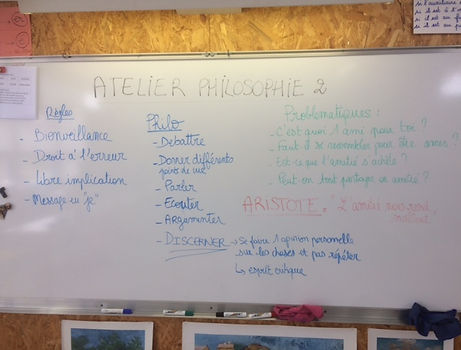 ATELIER PHILOSOPHIE 2
Règles
- Bienveillance
- Droit à l'erreur
- Libre implication
- Message en "je"
Philo
- Débattre
- Donner différents
points de vue
- Parler
- Ecouter
- Argumenter
- DISCERNER → Se faire 1 opinion personnelle
sur les choses et pas répéter
↳ esprit critique
Problématiques :
- C'est quoi 1 ami pour toi ?
- Faut il se ressembler pour être amis ?
- Est-ce que l'amitié s'achète ?
- Peut-on tout partager en amitié ?
ARISTOTE = "L'amitié nous rend